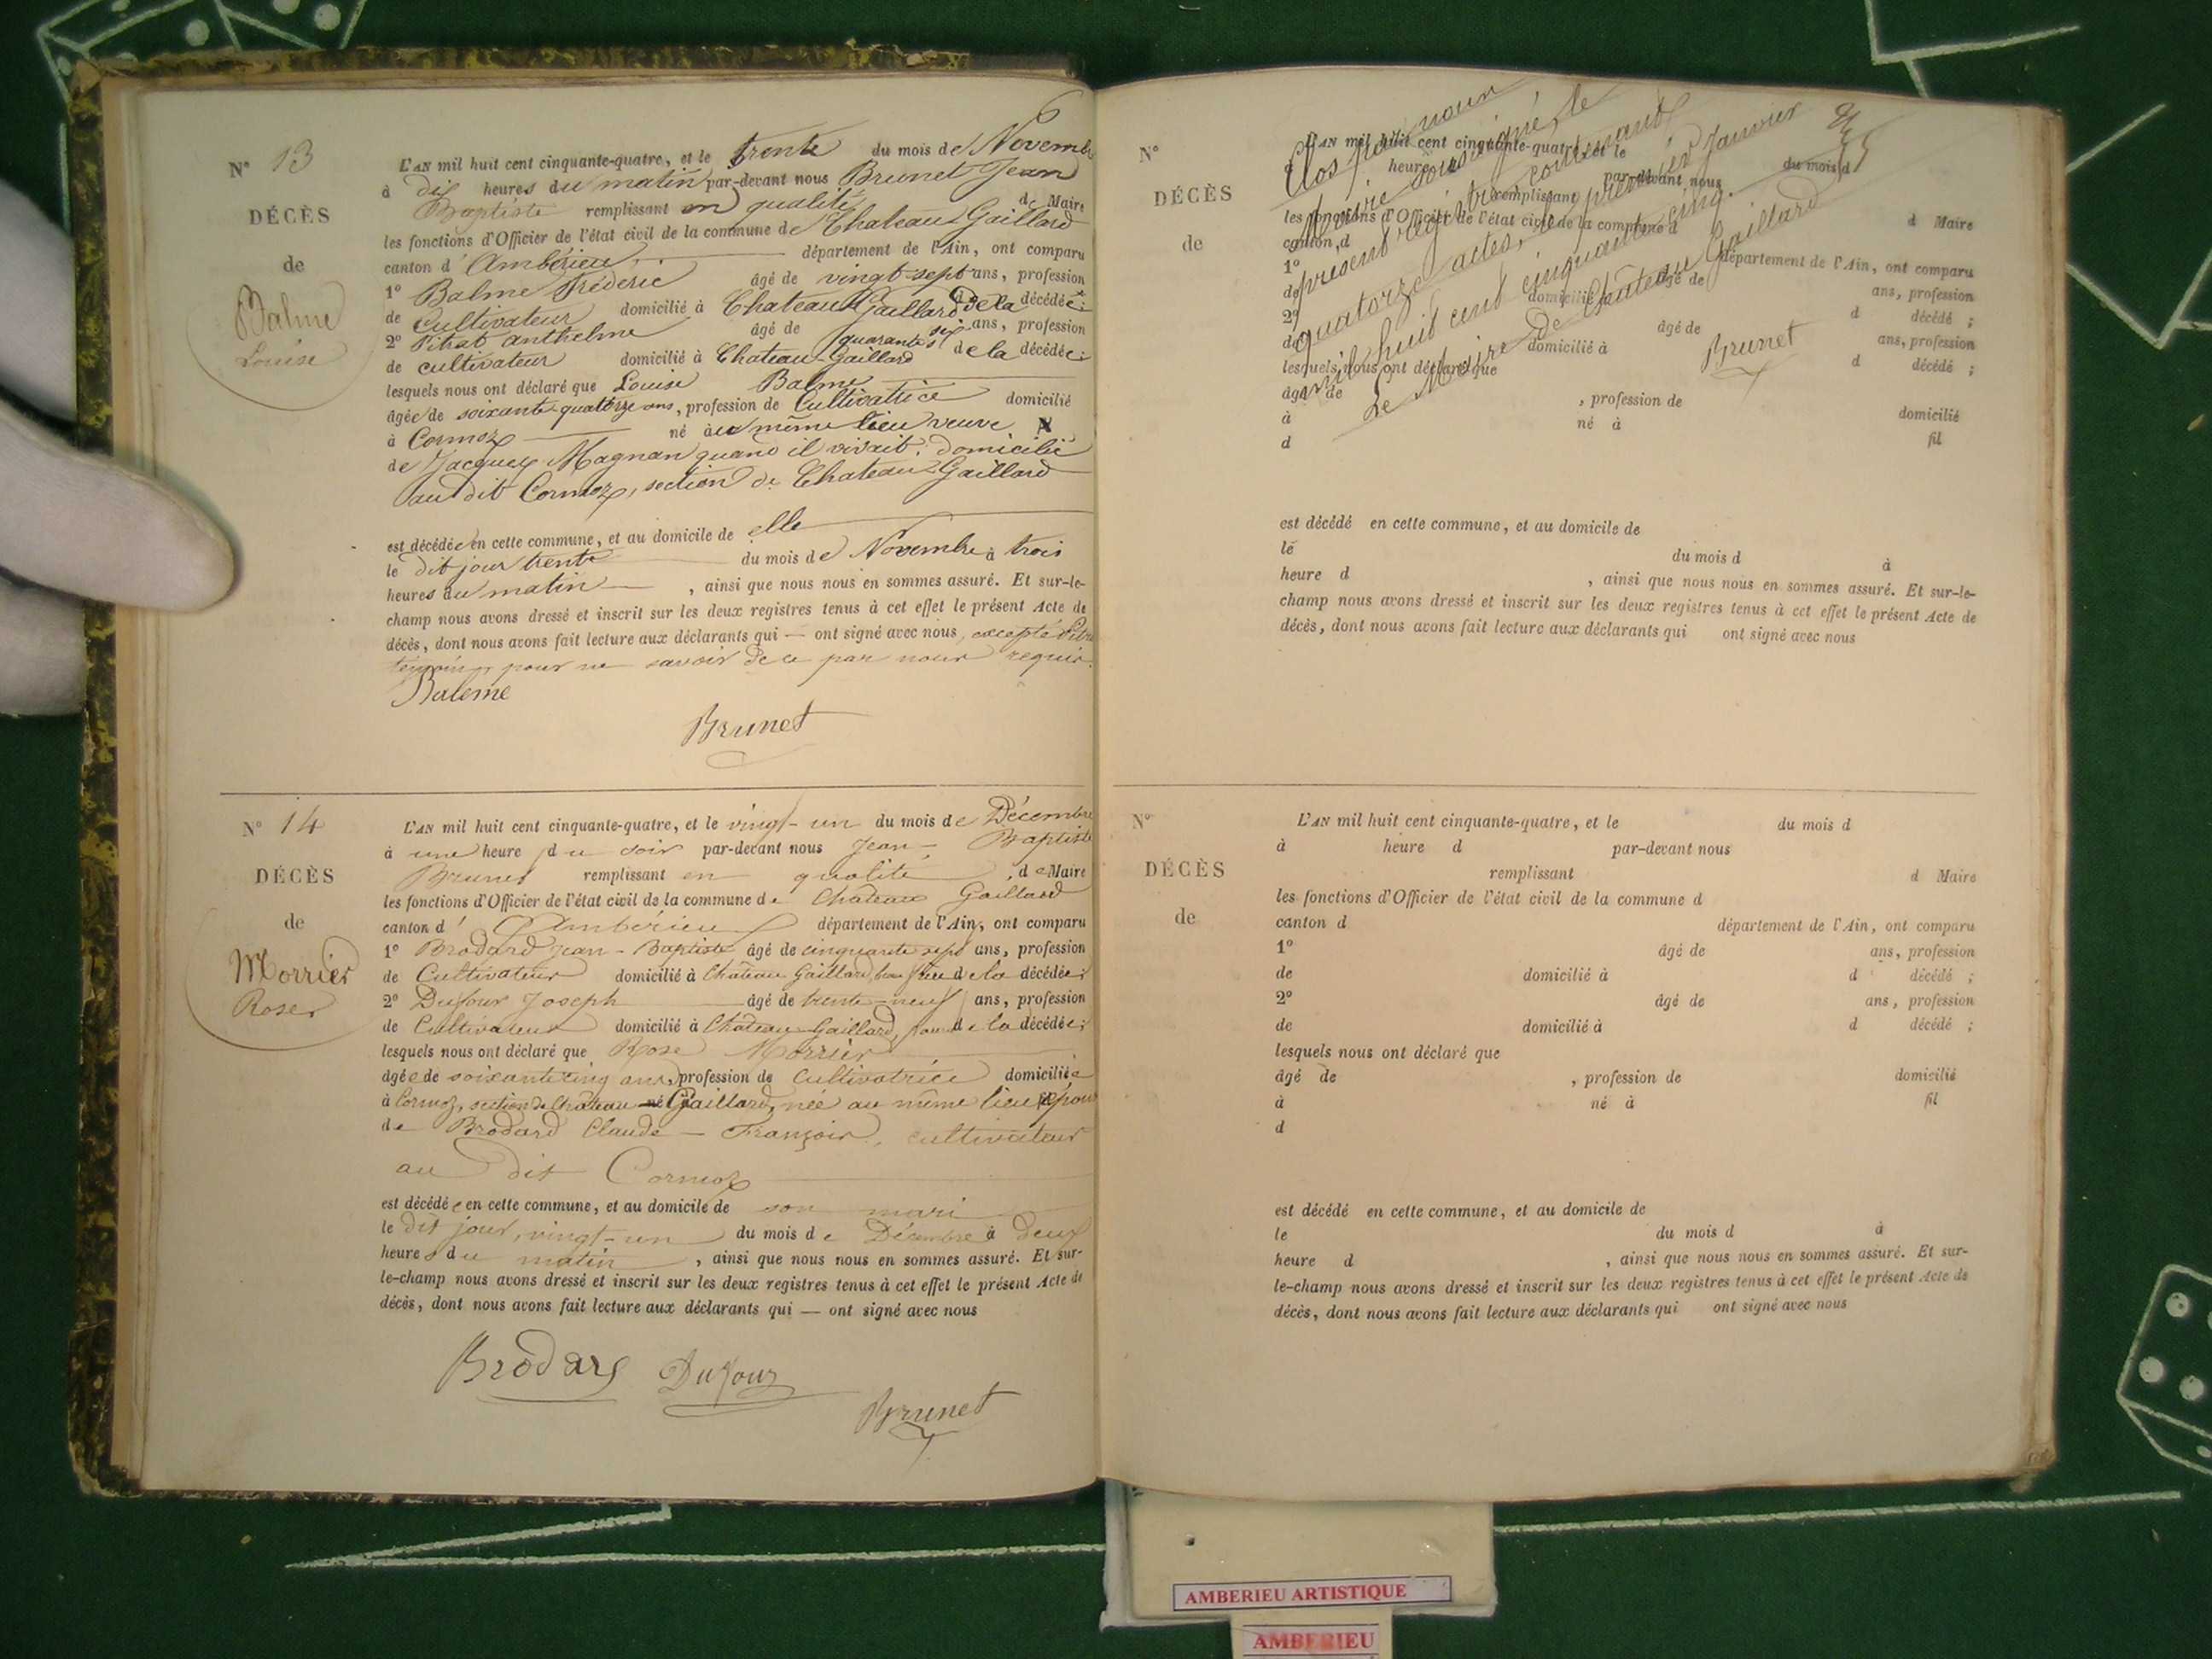 N° 13
DÉCÈS
de
Balme
Louise
L'AN mil huit cent cinquante-quatre, et le trente du mois de Novembre
à dix heures du matin par-devant nous Brunet Jean
Baptiste remplissant en qualité de Maire
les fonctions d'Officier de l'état civil de la commune de Chateau Gaillard
canton d'Ambérieu, département de l'Ain, ont comparu
1° Balme Frédéric âgé de vingt-sept ans, profession
de Cultivateur domicilié à Chateau Gaillard de la décédée;
2° Pitrat anthelme âgé de quarante six ans, profession
de cultivateur domicilié à Chateau-Gaillard de la décédée;
lesquels nous ont déclaré que Louise Balme
âgée de soixante quatorze ans, profession de Cultivatrice domicilié
à Cormoz né au même lieu veuve
de Jacques Magnan quand il vivait domicilié
au dit Cormoz, section de Chateau Gaillard
est décédée en cette commune, et au domicile de elle
le dit jour trente du mois de Novembre à trois
heures du matin, ainsi que nous nous en sommes assuré. Et sur-le-
champ nous avons dressé et inscrit sur les deux registres tenus à cet effet le présent Acte de
décès, dont nous avons fait lecture aux déclarants qui — ont signé avec nous, excepté
témoin, pour ne savoir de ce par nous requis.
Baleme
Brunet
N° 14
DÉCÈS
de
Morrier
Rose
L'AN mil huit cent cinquante-quatre, et le vingt-un du mois de Décembre
à une heure du soir par-devant nous Jean-Baptiste
Brunet remplissant en qualité, de Maire
les fonctions d'Officier de l'état civil de la commune de Chateau Gaillard
canton d'Ambérieu département de l'Ain, ont comparu
1° Brodard Jean-Baptiste âgé de cinquante sept ans, profession
de Cultivateur domicilié à Château Gaillard, beau frère de la décédée;
2° Dufour Joseph âgé de trente-neuf ans, profession
de Cultivateur domicilié à Château-Gaillard, de la décédée;
lesquels nous ont déclaré que Rose Morrier
âgée de soixante cinq ans, profession de Cultivatrice domiciliée
à Cormoz, section de Château né Gaillard, née au même lieu
de Brodard Claude-François, cultivateur
au dit Cormoz
est décédée en cette commune, et au domicile de son mari
le dit jour, vingt-un du mois de Décembre à deux
heures du matin, ainsi que nous nous en sommes assuré. Et sur-
le-champ nous avons dressé et inscrit sur les deux registres tenus à cet effet le présent Acte de
décès, dont nous avons fait lecture aux déclarants qui — ont signé avec nous
Brodard Dufour
Brunet
N°
DÉCÈS
de
L'AN mil huit cent cinquante-quatre, et le du mois d
à heure d par-devant nous
remplissant d Maire
les fonctions d'Officier de l'état civil de la commune d
canton d département de l'Ain, ont comparu
1° âgé de ans, profession
de domicilié à d décédé ;
2° âgé de ans, profession
de domicilié à d décédé ;
lesquels nous ont déclaré que
âgé de , profession de domicilié
à né à fil
d
Clos par nous
Maire soussigné, le
présent registre contenant
quatorze actes, le premier Janvier
mil huit cent cinquante cinq.
Le Maire de Chateau Gaillard
Brunet
est décédé en cette commune, et au domicile de
le du mois d à
heure d , ainsi que nous nous en sommes assuré. Et sur-le-
champ nous avons dressé et inscrit sur les deux registres tenus à cet effet le présent Acte de
décès, dont nous avons fait lecture aux déclarants qui ont signé avec nous
N°
DÉCÈS
de
L'AN mil huit cent cinquante-quatre, et le du mois d
à heure d par-devant nous
remplissant d Maire
les fonctions d'Officier de l'état civil de la commune d
canton d département de l'Ain, ont comparu
1° âgé de ans, profession
de domicilié à d décédé ;
2° âgé de ans, profession
de domicilié à d décédé ;
lesquels nous ont déclaré que
âgé de , profession de domicilié
à né à fil
d
est décédé en cette commune, et au domicile de
le du mois d à
heure d , ainsi que nous nous en sommes assuré. Et sur-
le-champ nous avons dressé et inscrit sur les deux registres tenus à cet effet le présent Acte de
décès, dont nous avons fait lecture aux déclarants qui ont signé avec nous
AMBERIEU ARTISTIQUE
AMBERIEU